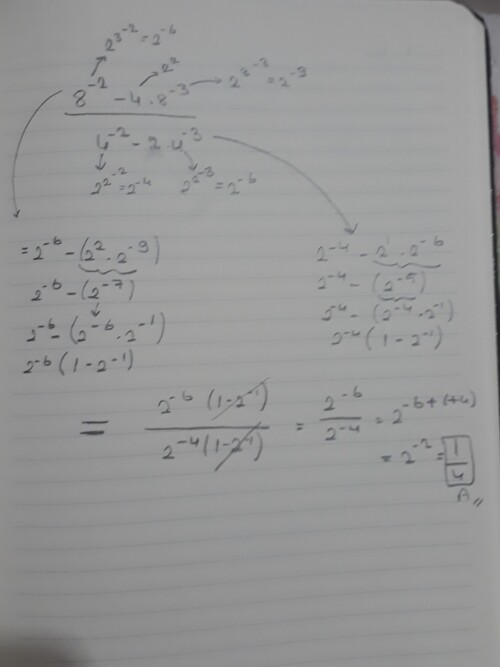 2^3^-2 = 2^-6
2^2
8^-2 - 4 . 8^-3 → 2^3^-3 = 2^-9
4^-2 - 2 . 4^-3
2^2^-2 = 2^-4 2^2^-3 = 2^-6
= 2^-6 - (2^2 . 2^-9) 2^-4 - 2^1 . 2^-6
2^-6 - (2^-7) 2^-4 - (2^-5)
2^-6 - (2^-6 . 2^-1) 2^-4 - (2^-4 . 2^-1)
2^-6 (1 - 2^-1) 2^-4 (1 - 2^-1)
= 2^-6 (1-2^-1) / 2^-4 (1-2^-1) = 2^-6 / 2^-4 = 2^-6+(+4)
= 2^-2 = 1/4
A //